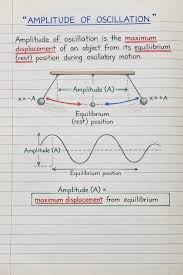 "AMPLITUDE OF OSCILLATION"
Amplitude of oscillation is the maximum
displacement of an object from its equilibrium
(rest) position during oscillatory motion.
Amplitude (A)
x=-A
x=+A
Equilibrium
(rest) position
Amplitude (A)
Equilibrium position
Amplitude (A) =
maximum displacement from equilibrium